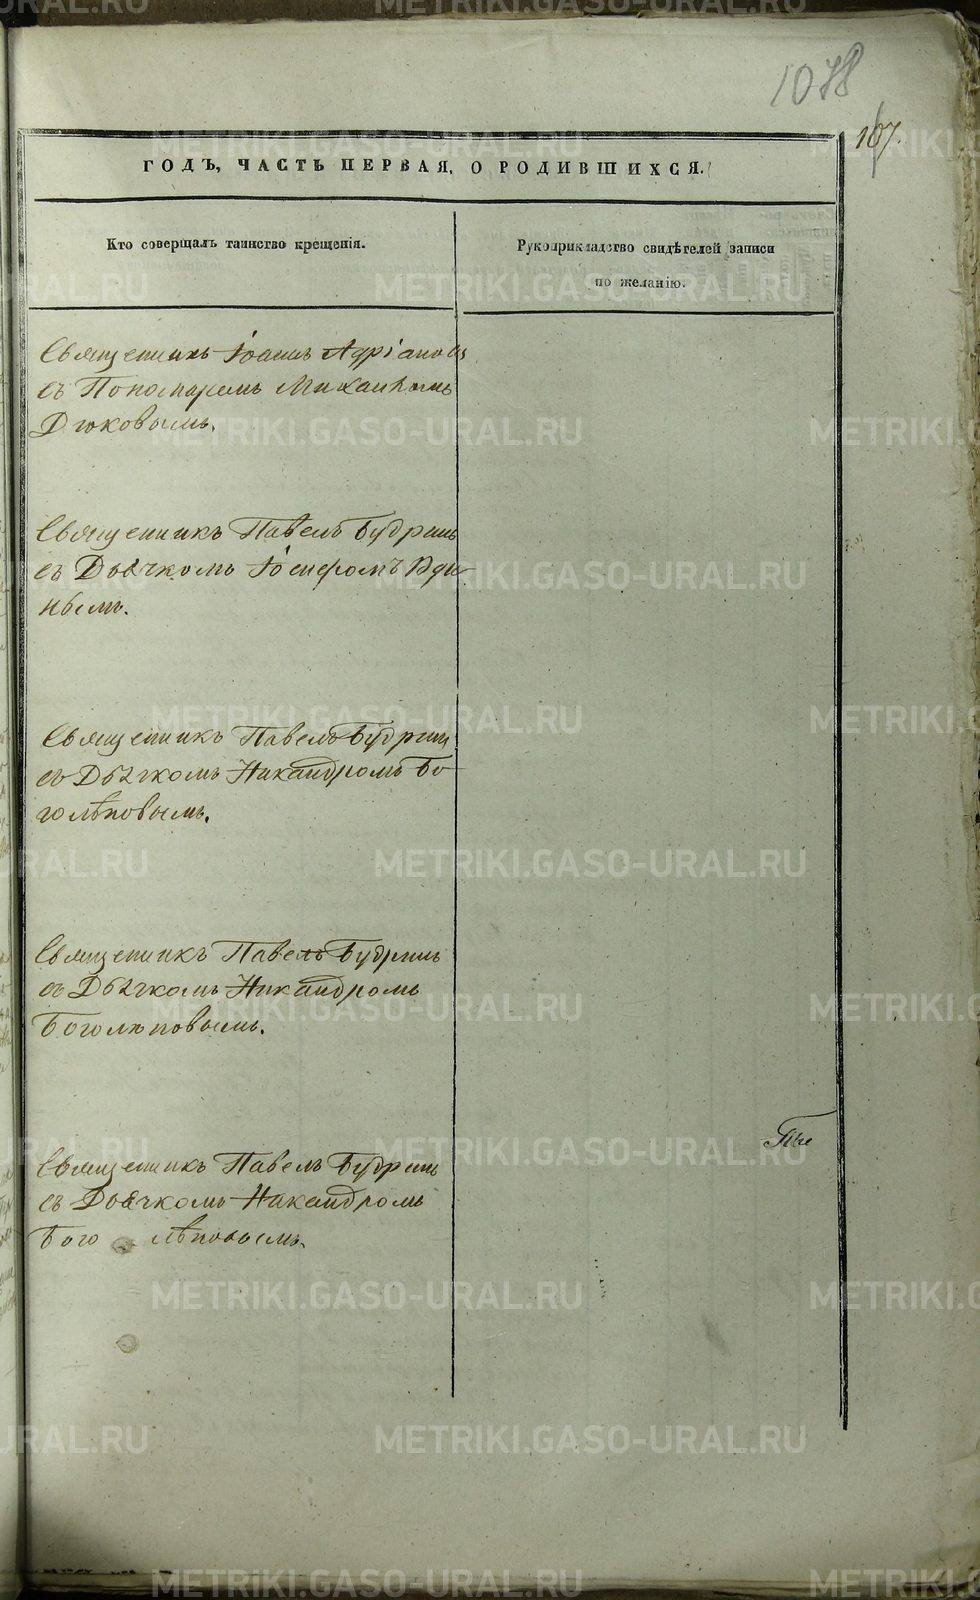 1078
107.
ГОДЪ, ЧАСТЬ ПЕРВАЯ, О РОДИВШИХСЯ.
Кто совершалъ таинство крещенія.
Рукоприкладство свидѣтелей записи
по желанію.
Священникъ Іоаннъ Адріановъ
съ Пономаремъ Михаиломъ
Дюковымъ.
Священникъ Павелъ Будринъ
съ Дьячкомъ Іосифомъ
нымъ.
Священникъ Павелъ Будринъ
съ Дьячкомъ Никандромъ Бо
голѣповымъ.
Священникъ Павелъ Будринъ
съ Дьячкомъ Никандромъ
Боголюповымъ.
Священникъ Павелъ Будринъ
съ Дьячкомъ Никандромъ
Бого лѣповымъ.
METRIKI.GASO-URAL.RU